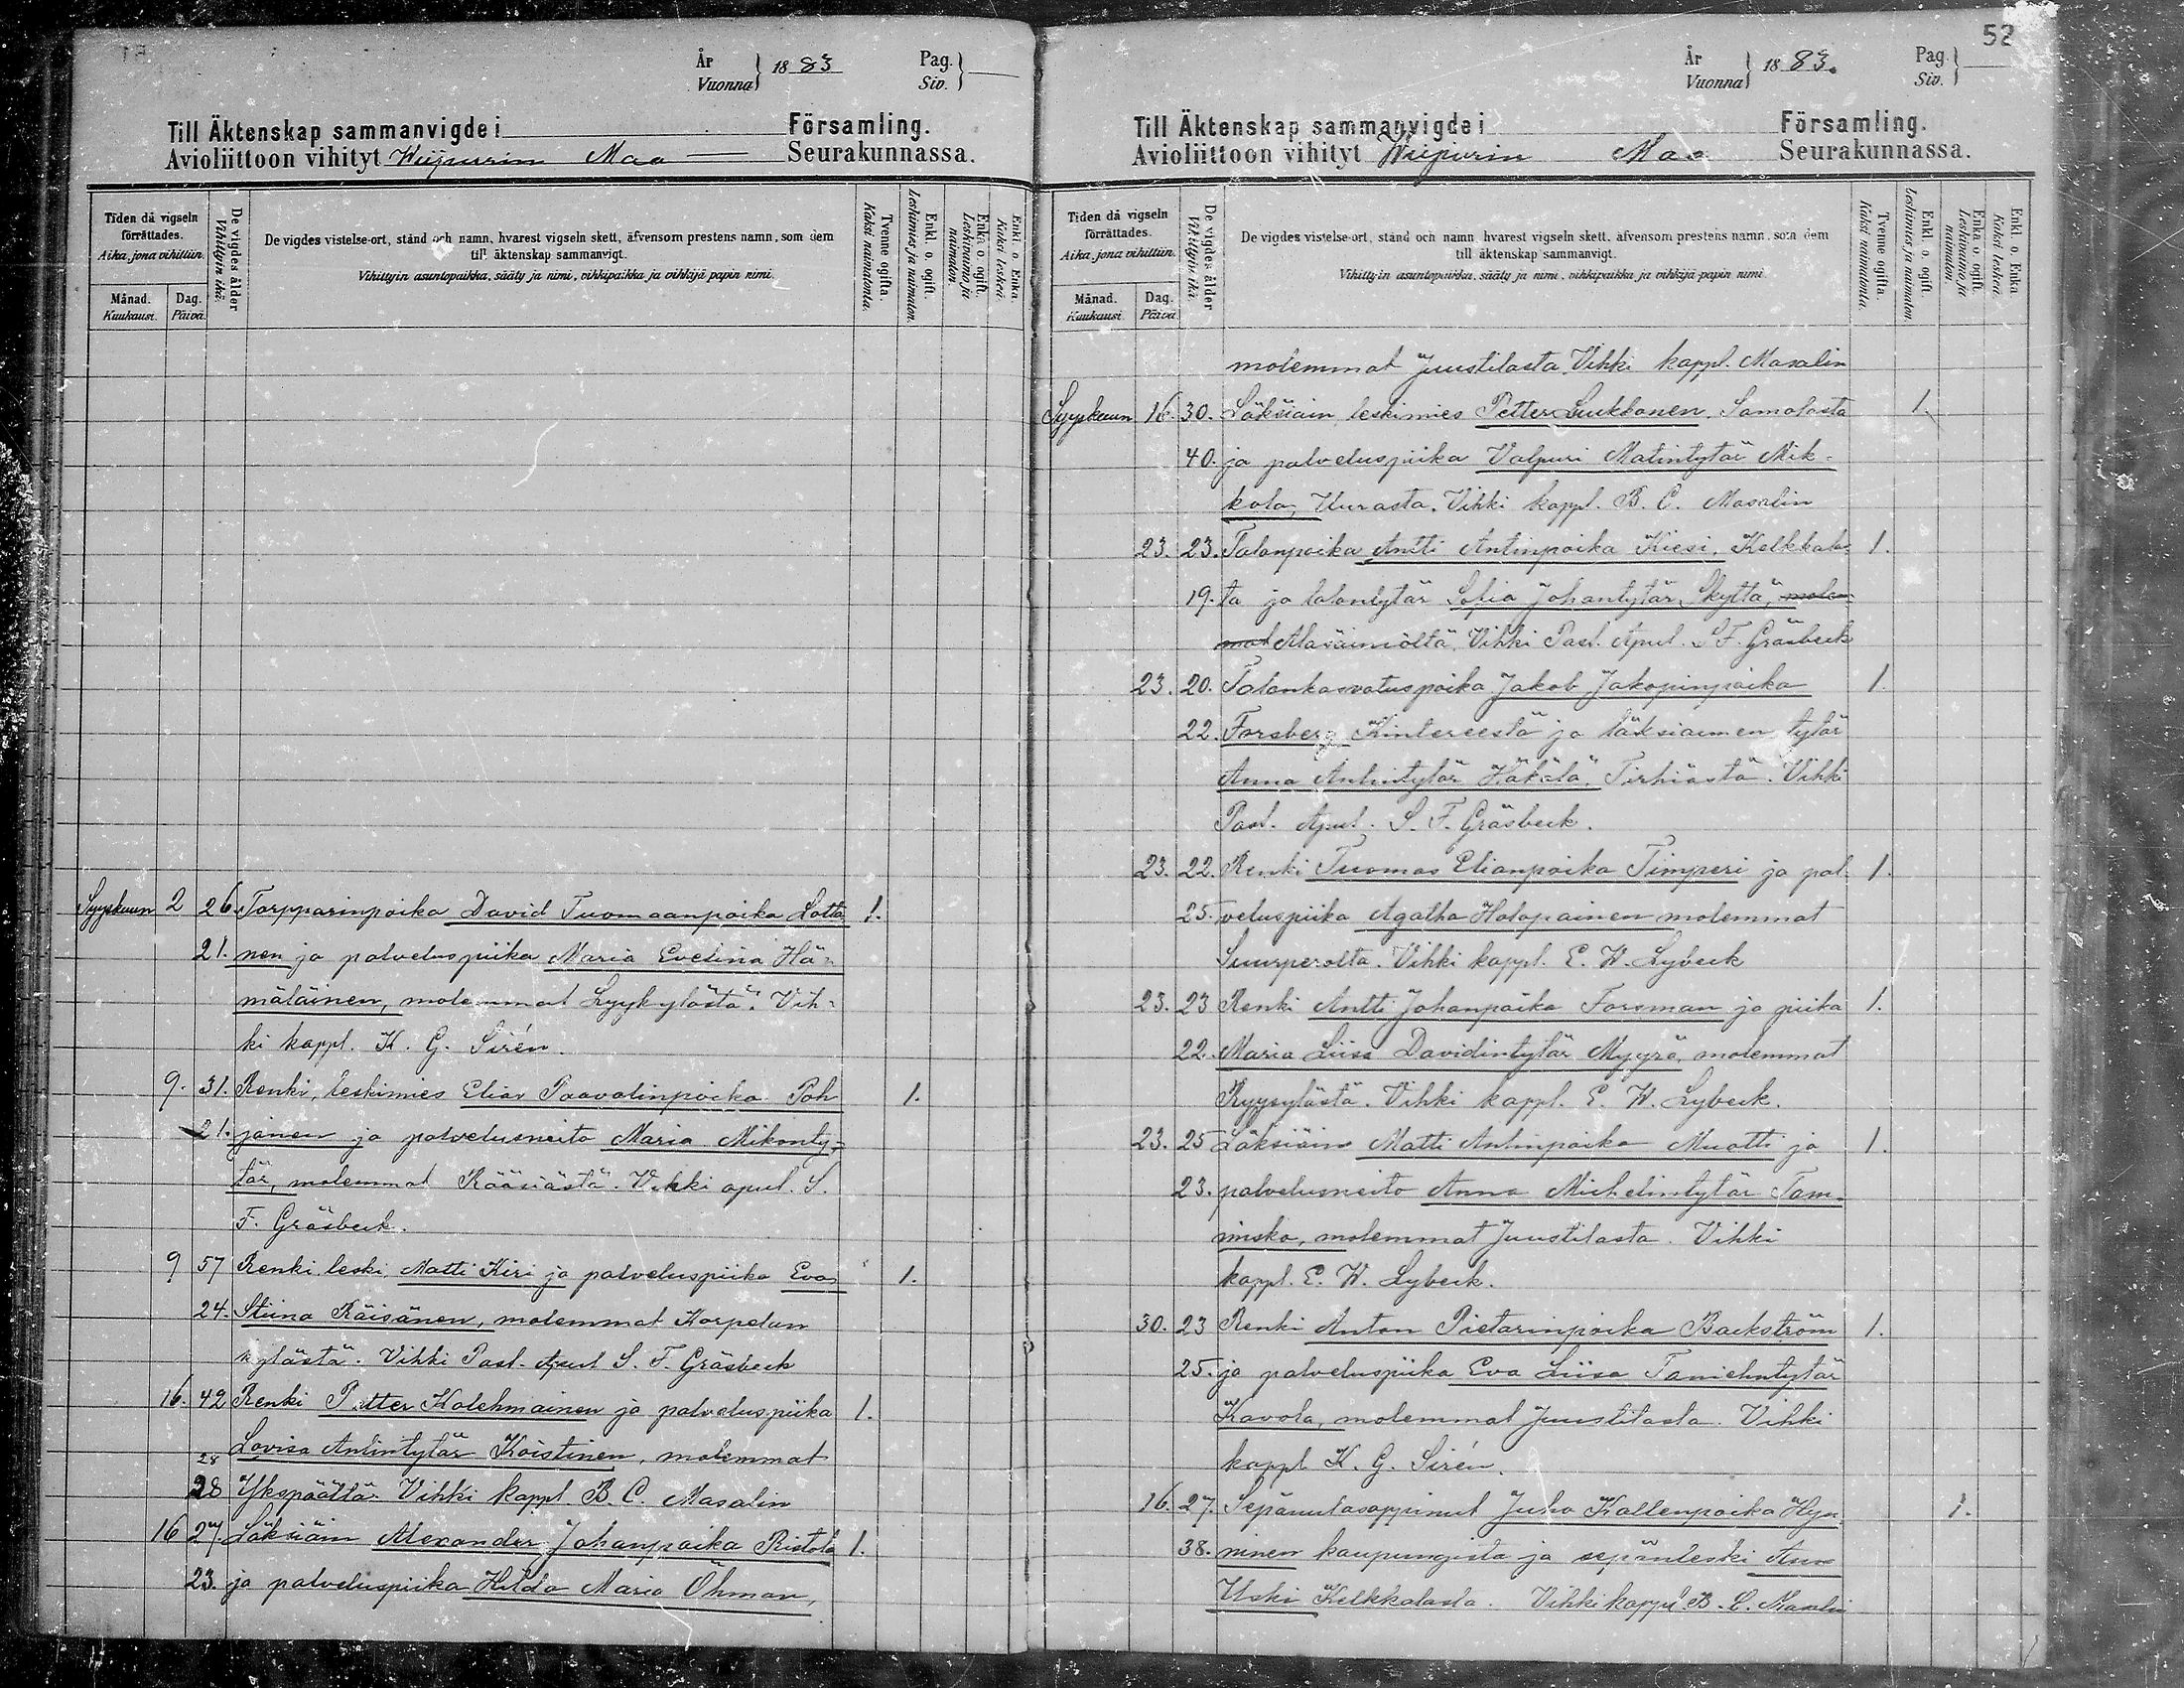 År
Vuonna } 1883
Pag.
Siv. }
Till Äktenskap sammanvigde i Församling.
Avioliittoon vihityt Wiipurin Maa Seurakunnassa.
Tiden då vigseln förrättades.
Aika, jona vihittiin.
Månad.
Kuukausi.
Dag.
Päivä.
De vigdes ålder
Vihittyin ikä.
De vigdes vistelse-ort, stånd och namn, hvarest vigseln skett, äfvensom prestens namn, som dem
till äktenskap sammanvigt.
Vihittyin asuntopaikka, sääty ja nimi, vihkipaikka ja vihkijä papin nimi.
Tvenne ogifta.
Kaksi naimatonta.
Enkl. o. ogift.
Leskimies ja naimaton.
Enka o. ogift.
Leskivaimo ja naimaton.
Enkl. o. Enka.
Kaksi leskeä.
Syyskuun 2 26. Torpparinpoika David Tuomaanpoika Lotta 1.
21. nen ja palveluspiika Maria Evelina Hä-
mäläinen, molemmat Lyykylästä. Vih-
ki kappl. K. G. Sirén.
9. 31. Renki, leskimies Elias Paavalinpoika Poh 1.
21. jonen ja palvelusneito Maria Mikonty-
tär, molemmat Rääsiästä. Vihki apul. S.
F. Gräsbeck.
9 57 Renki, leski, Matti Kiri ja palveluspiika Eva 1.
24. Stiina Räisänen, molemmat Korpelan
kylästä. Vihki Past. Apul S. F. Gräsbeck
16. 42 Renki Petter Kolehmainen ja palveluspiika 1.
28 Lovisa Antintytär Koistinen, molemmat
28 Ykspäältä. Vihki kappl. B. C. Masalin
16 27. Läksiäin Alexander Johanpoika Ristola 1.
23. ja palveluspiika Hilda Maria Öhman,
52
År
Vuonna } 1883.
Pag.
Siv. }
Till Äktenskap sammanvigde i Församling.
Avioliittoon vihityt Wiipurin Maa Seurakunnassa.
Tiden då vigseln förrättades.
Aika, jona vihittiin.
Månad.
Kuukausi.
Dag.
Päivä.
De vigdes ålder
Vihittyin ikä.
De vigdes vistelse-ort, stånd och namn, hvarest vigseln skett, äfvensom prestens namn, som dem
till äktenskap sammanvigt.
Vihittyin asuntopaikka, sääty ja nimi, vihkipaikka ja vihkijä papin nimi.
Tvenne ogifta.
Kaksi naimatonta.
Enkl. o. ogift.
Leskimies ja naimaton.
Enka o. ogift.
Leskivaimo ja naimaton.
Enkl. o. Enka
Kaksi leskeä.
molemmat Juustilasta. Vihki kappl. Masalin
Syyskuun 16. 30. Läksiäin, leskimies Petter Luukkonen, Samolasta 1.
40. ja palveluspiika Valpuri Matintytär Mik-
kola, Uurasta. Vihki kappl. B. C. Masalin
23. 23. Talonpoika Antti Antinpoika Kiesi, Kelkkalas- 1.
19. ta ja talontytär Sofia Johantytär Skyttä, molem-
mat Alasäiniöltä. Vihki Past. Apul. S F. Gräsbeck
23. 20. Talonkasvatuspoika Jakob Jakopinpoika 1.
22. Forsberg Kintereestä ja läksiäimen tytär
Anna Antintytär Häkälä, Tirhiästä. Vihki
Past. Apul. S. F. Gräsbeck.
23. 22. Renki Tuomas Elianpoika Timperi ja pal- 1.
25. veluspiika Agatha Holopainen molemmat
Suurperolta. Vihki kappl. E. W. Lybeck
23. 23 Renki Antti Johanpoika Forsman ja piika 1.
22. Maria Liisa Davidintytär Myyrä, molemmat
Ryysylästä. Vihki kappl. E. W. Lybeck.
23. 25 Läksiäin Matti Antinpoika Muotti ja 1.
23. palvelusneito Anna Michelintytär Tam-
misko, molemmat Juustilasta. Vihki
kappl. E. W. Lybeck.
30. 23 Renki Anton Pietarinpoika Backström 1.
25. ja palveluspiika Eva Liisa Tanielintytär
Kavola, molemmat Juustilasta. Vihki
kappl K. G. Sirén.
16. 27. Sepänulosoppinut Juho Kallenpoika Hyn 1.
38. ninen kaupungista ja sepänleski Anna
Uski Kelkkalasta. Vihki kappl B. C. Masalin